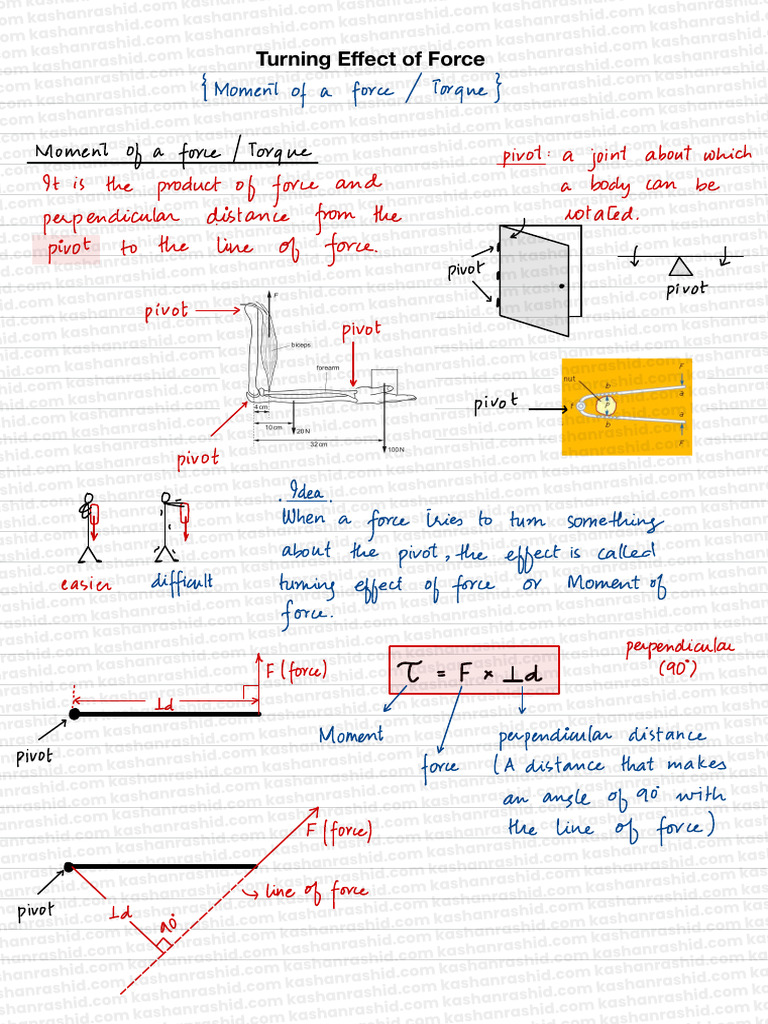 Turning Effect of Force
{Moment of a force / Torque}
Moment of a force / Torque
It is the product of force and
perpendicular distance from the
pivot to the line of force.
pivot: a joint about which
a body can be
rotated.
pivot
pivot
pivot
pivot
pivot
F
biceps
forearm
4 cm
10 cm
20 N
32 cm
100 N
pivot
nut
b
F
a
f
P
b
a
F
easier
difficult
Idea.
When a force tries to turn something
about the pivot, the effect is called
turning effect of force or Moment of
force.
F (force)
⊥d
pivot
τ = F × ⊥d
perpendicular
(90°)
Moment
force
perpendicular distance
(A distance that makes
an angle of 90° with
the line of force)
F (force)
pivot
⊥d
90°
line of force
kashanrashid.com